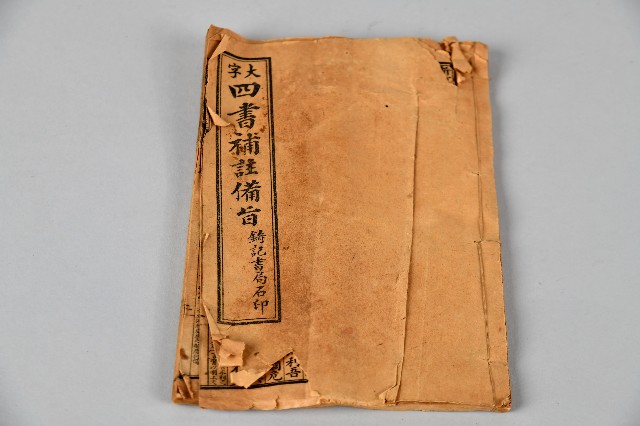 大字
四書補註備旨
鑄記書局石印